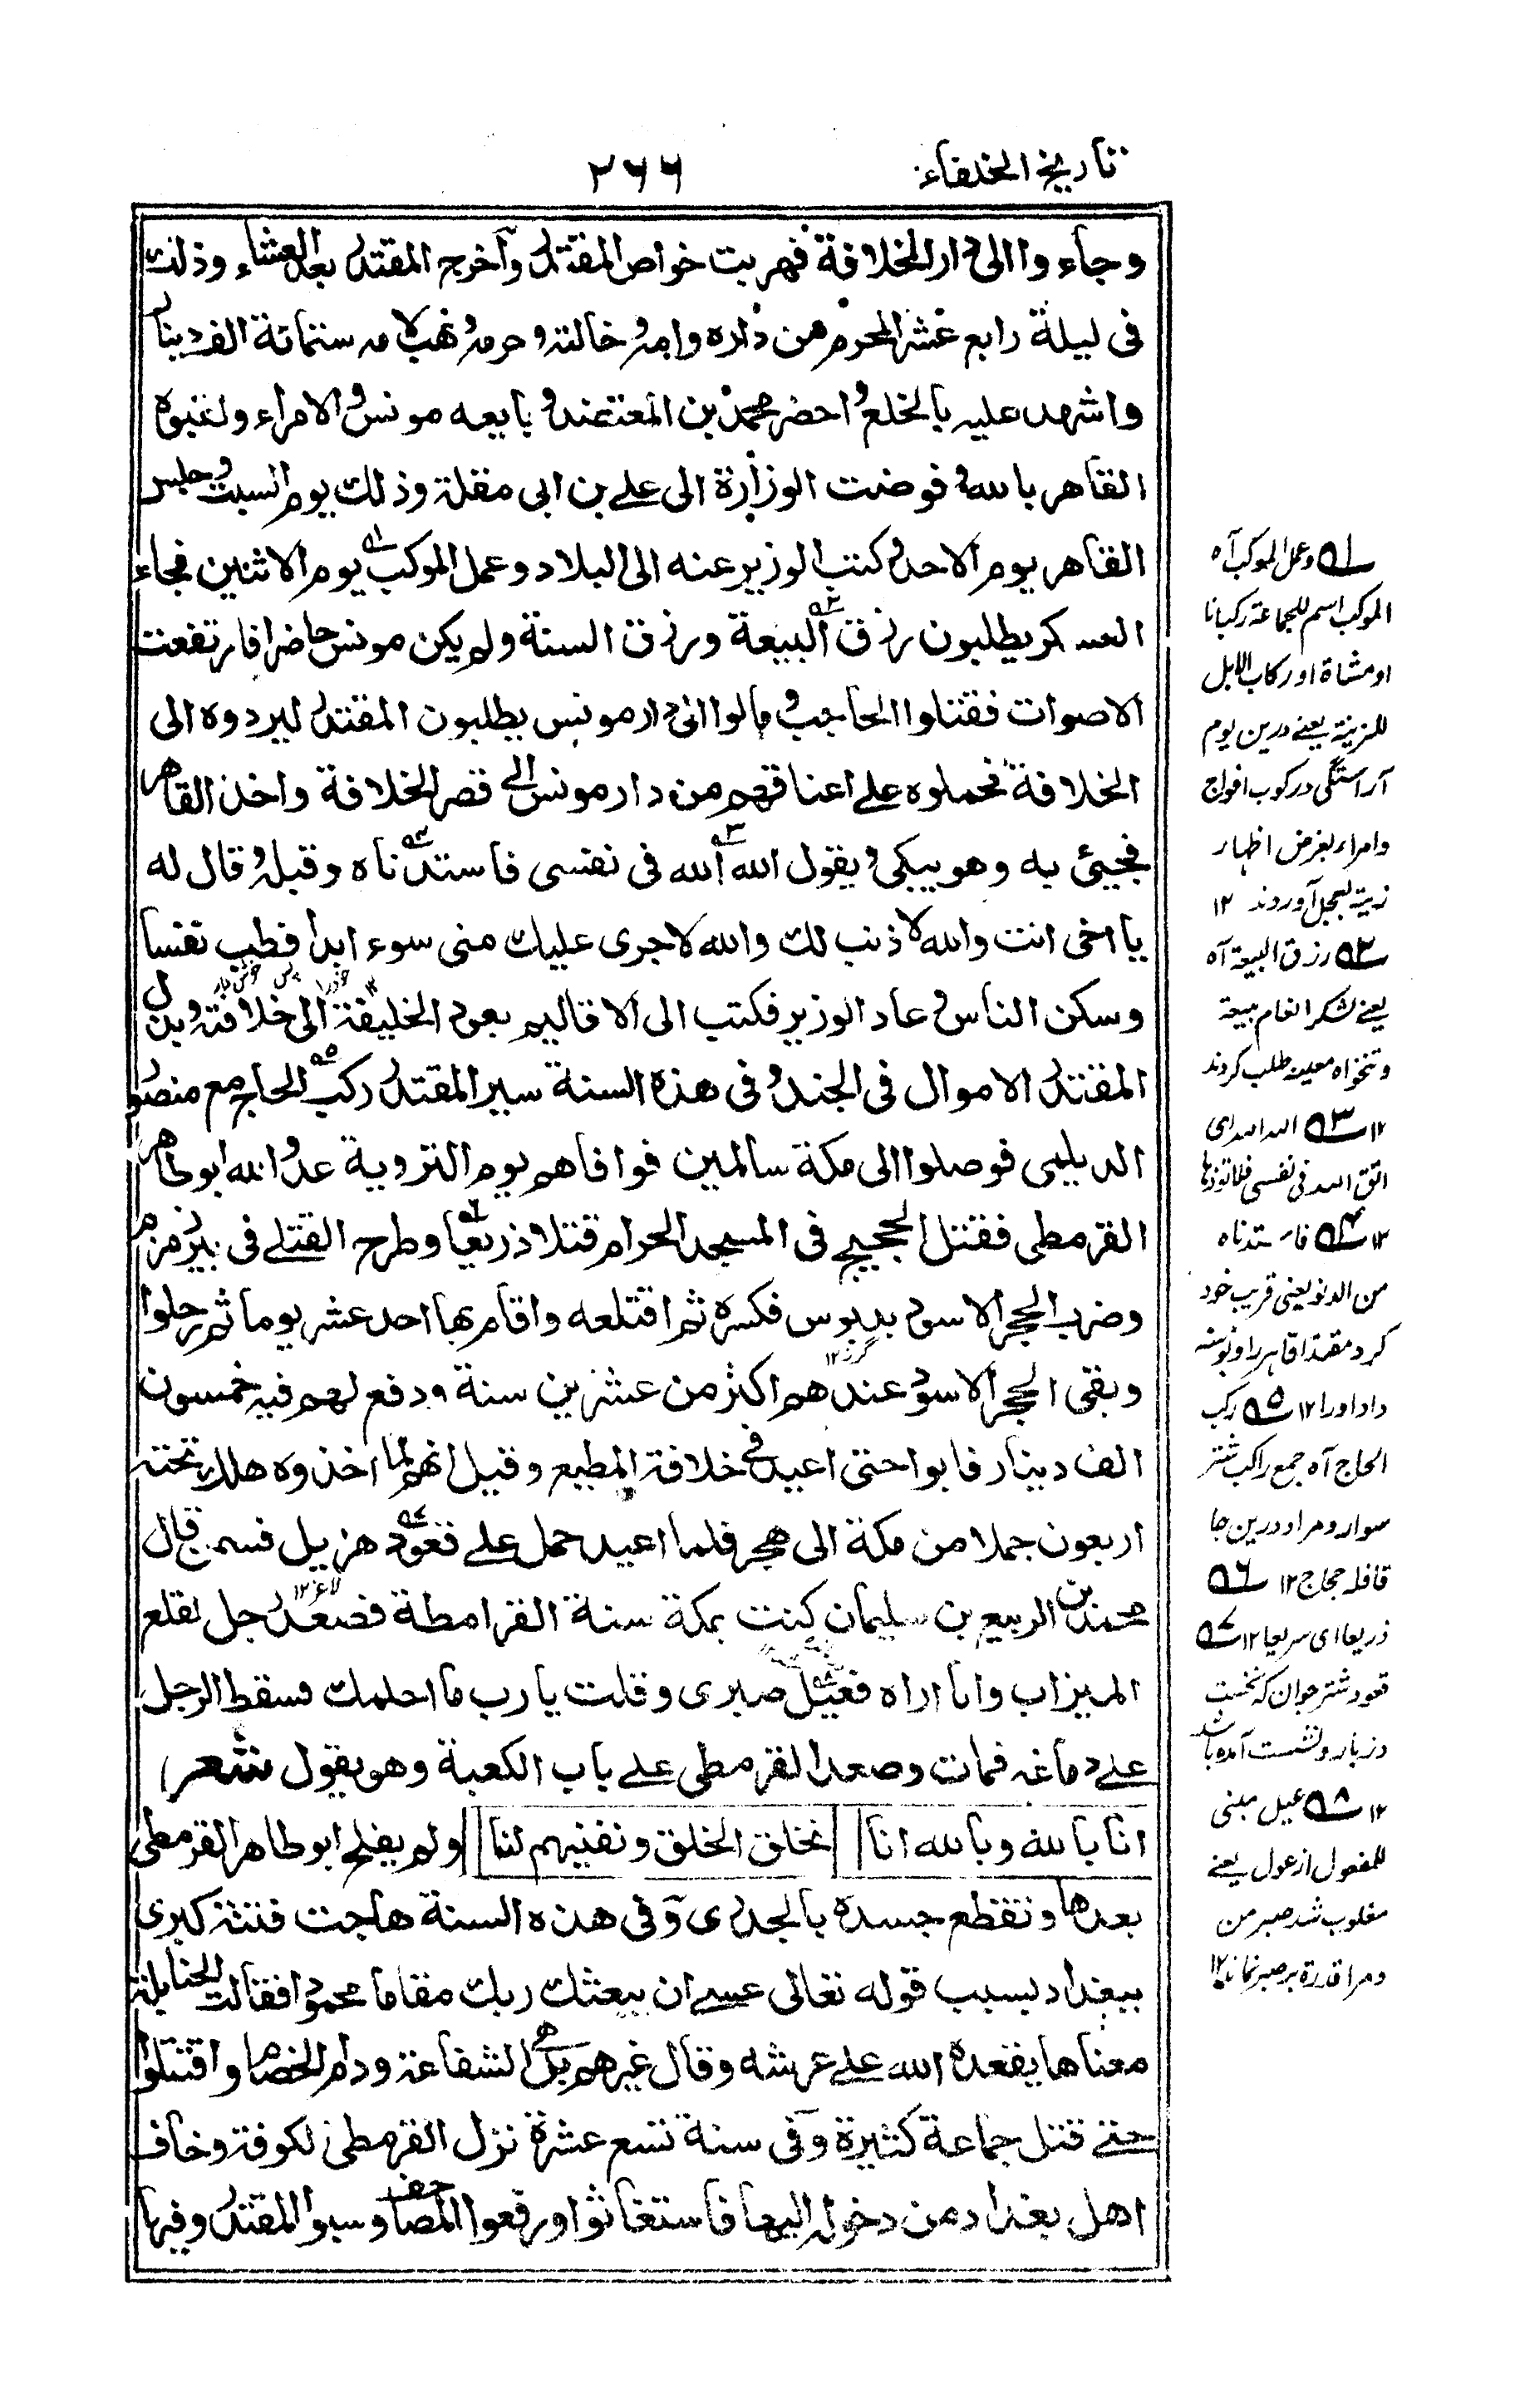 تاريخ الخلفاء
٢٦٦
وجاءوا الى دار الخلافة فهربت خواص المقتدر وآخرج المقتدر بعد العشاء وذلك
فى ليلة رابع عشر المحرم من داره وامه وخالته وحرمه ونهب لامه ستمائة الف دينار
واشهد عليه بالخلع واحضر محمد بن المعتضد وبايعه مونس والامراء ولقبوه
القاهر بالله وفوضت الوزارة الى علے بن ابى مقلة وذلك يوم السبت وجلس
القاهر يوم الاحد وكتب الوزير عنه الى البلاد وعمل الموكب يوم الاثنين فجاء
العسكر يطلبون رزق البيعة ورزق السنة ولم يكن مونس حاضرا فارتفعت
الاصوات فقتلوا الحاجب ومالوا الى دار مونس يطلبون المقتدر ليردوه الى
الخلافة فحملوه علے اعناقهم من دار مونس الے قصر الخلافة واخذ القاهر
فجيئ به وهو يبكى ويقول الله الله فى نفسى فاستدناه وقبله وقال له
يا اخى انت والله لا ذنب لك والله لا جرى عليك منى سوء ابدا فطب نفسا
وسكن الناس وعاد الوزير فكتب الى الاقاليم بعود الخليفة الى خلافته وبذل
المقتدر الاموال فى الجند وفى هذه السنة سير المقتدر ركب الحاج مع منصور
الديلمى فوصلوا الى مكة سالمين فوافاهم يوم التروية عدو الله ابو طاهر
القرمطى فقتل الحجيج فى المسجد الحرام قتلا ذريعا وطرح القتلے فى بير زمزم
وضرب الحجر الاسود بدبوس فكسره ثم اقتلعه واقام بها احد عشر يوما ثم رحلوا
گرز ١٢
وبقى الحجر الاسود عندهم اكثر من عشرين سنة ودفع لهم فيه خمسون
الف دينار فابوا حتى اعيد فى خلافة المطيع وقيل انهم لما اخذوه هلك تحته
اربعون جملا من مكة الى هجر فلما اعيد حمل علے قعود هزيل فسمن قال
لاغر ١٢
محمد بن الربيع بن سليمان كنت بمكة سنة القرامطة فصعد رجل لقلع
الميزاب وانا اراه فعيل صبرى وقلت يا رب ما احلمك فسقط الرجل
علے دماغه فمات وصعد القرمطى علے باب الكعبة وهو يقول شعر
انا بالله وبالله انا نخلق الخلق ونفنيهم لنا ولم يفلح ابو طاهر القرمطى
بعدها وتقطع جسده بالجدرى وٓفى هذه السنة هاجت فتنة كبرى
ببغداد بسبب قوله تعالى عسے ان يبعثك ربك مقاما محمودا فقالت الحنابلة
معناها يقعده الله علے عرشه وقال غيرهم بل هى الشفاعة ودام الخصام واقتتلوا
حتے قتل جماعة كثيرة وٓفى سنة تسع عشرة نزل القرمطى الكوفة وخاف
اهل بغداد من دخوله اليها فاستغاثوا ورفعوا المصاحف وسبوا المقتدر وفيها
١ وعمل الموكب آه
الموكب اسم للجماعة ركبانا
او مشاة او ركاب الابل
للزينة يعنے درين يوم
آراستگى در كوب افواج
وامراء بغرض اظهار
زينة بعمل آوردند ١٢
٢ رزق البيعة آه
يعنے لشكر انعام بيعة
وتنخواه معينه طلب كردند
١٢ ٣ الله الله اى
اتق الله فى نفسى فلا تؤذها
١٢ ٤ فاستدناه
من الدنو يعنى قريب خود
كرد مقتدر قاهر را وبوسه
داد اورا ١٢ ٥ ركب
الحاج آه جمع راكب شتر
سوار ومراد درين جا
قافله حجاج ١٢ ٦
ذريعا اى سريعا ١٢ ٧
قعود شتر جوان كه نخست
در بار ونشست آمده باشد
١٢ ٨ عيل مبنى
للمفعول از عول يعنے
مغلوب شد صبر من
ومرا قدرة بر صبر نماند ١٢